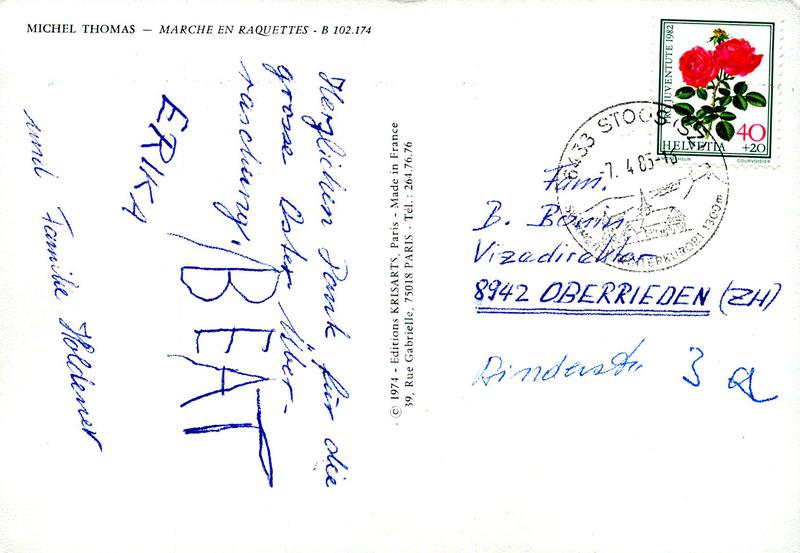 MICHEL THOMAS – MARCHE EN RAQUETTES - B 102.174
Herzlichen Dank für die
grosse Oster Über-
raschung.
ERIKA / BEAT
und Familie Holdener
© 1974 - Editions KRISARTS, Paris - Made in France
39, Rue Gabrielle, 75018 PARIS - Tél.: 264.76.76
PRO JUVENTUTE 1982
40
+20
HELVETIA
COURVOISIER
6433 STOOS (SZ)
-7.4.83-
WINTERKURORT 1300m
Fam.
B.
Vizedirektor
8942 OBERRIEDEN (ZH)
3 a